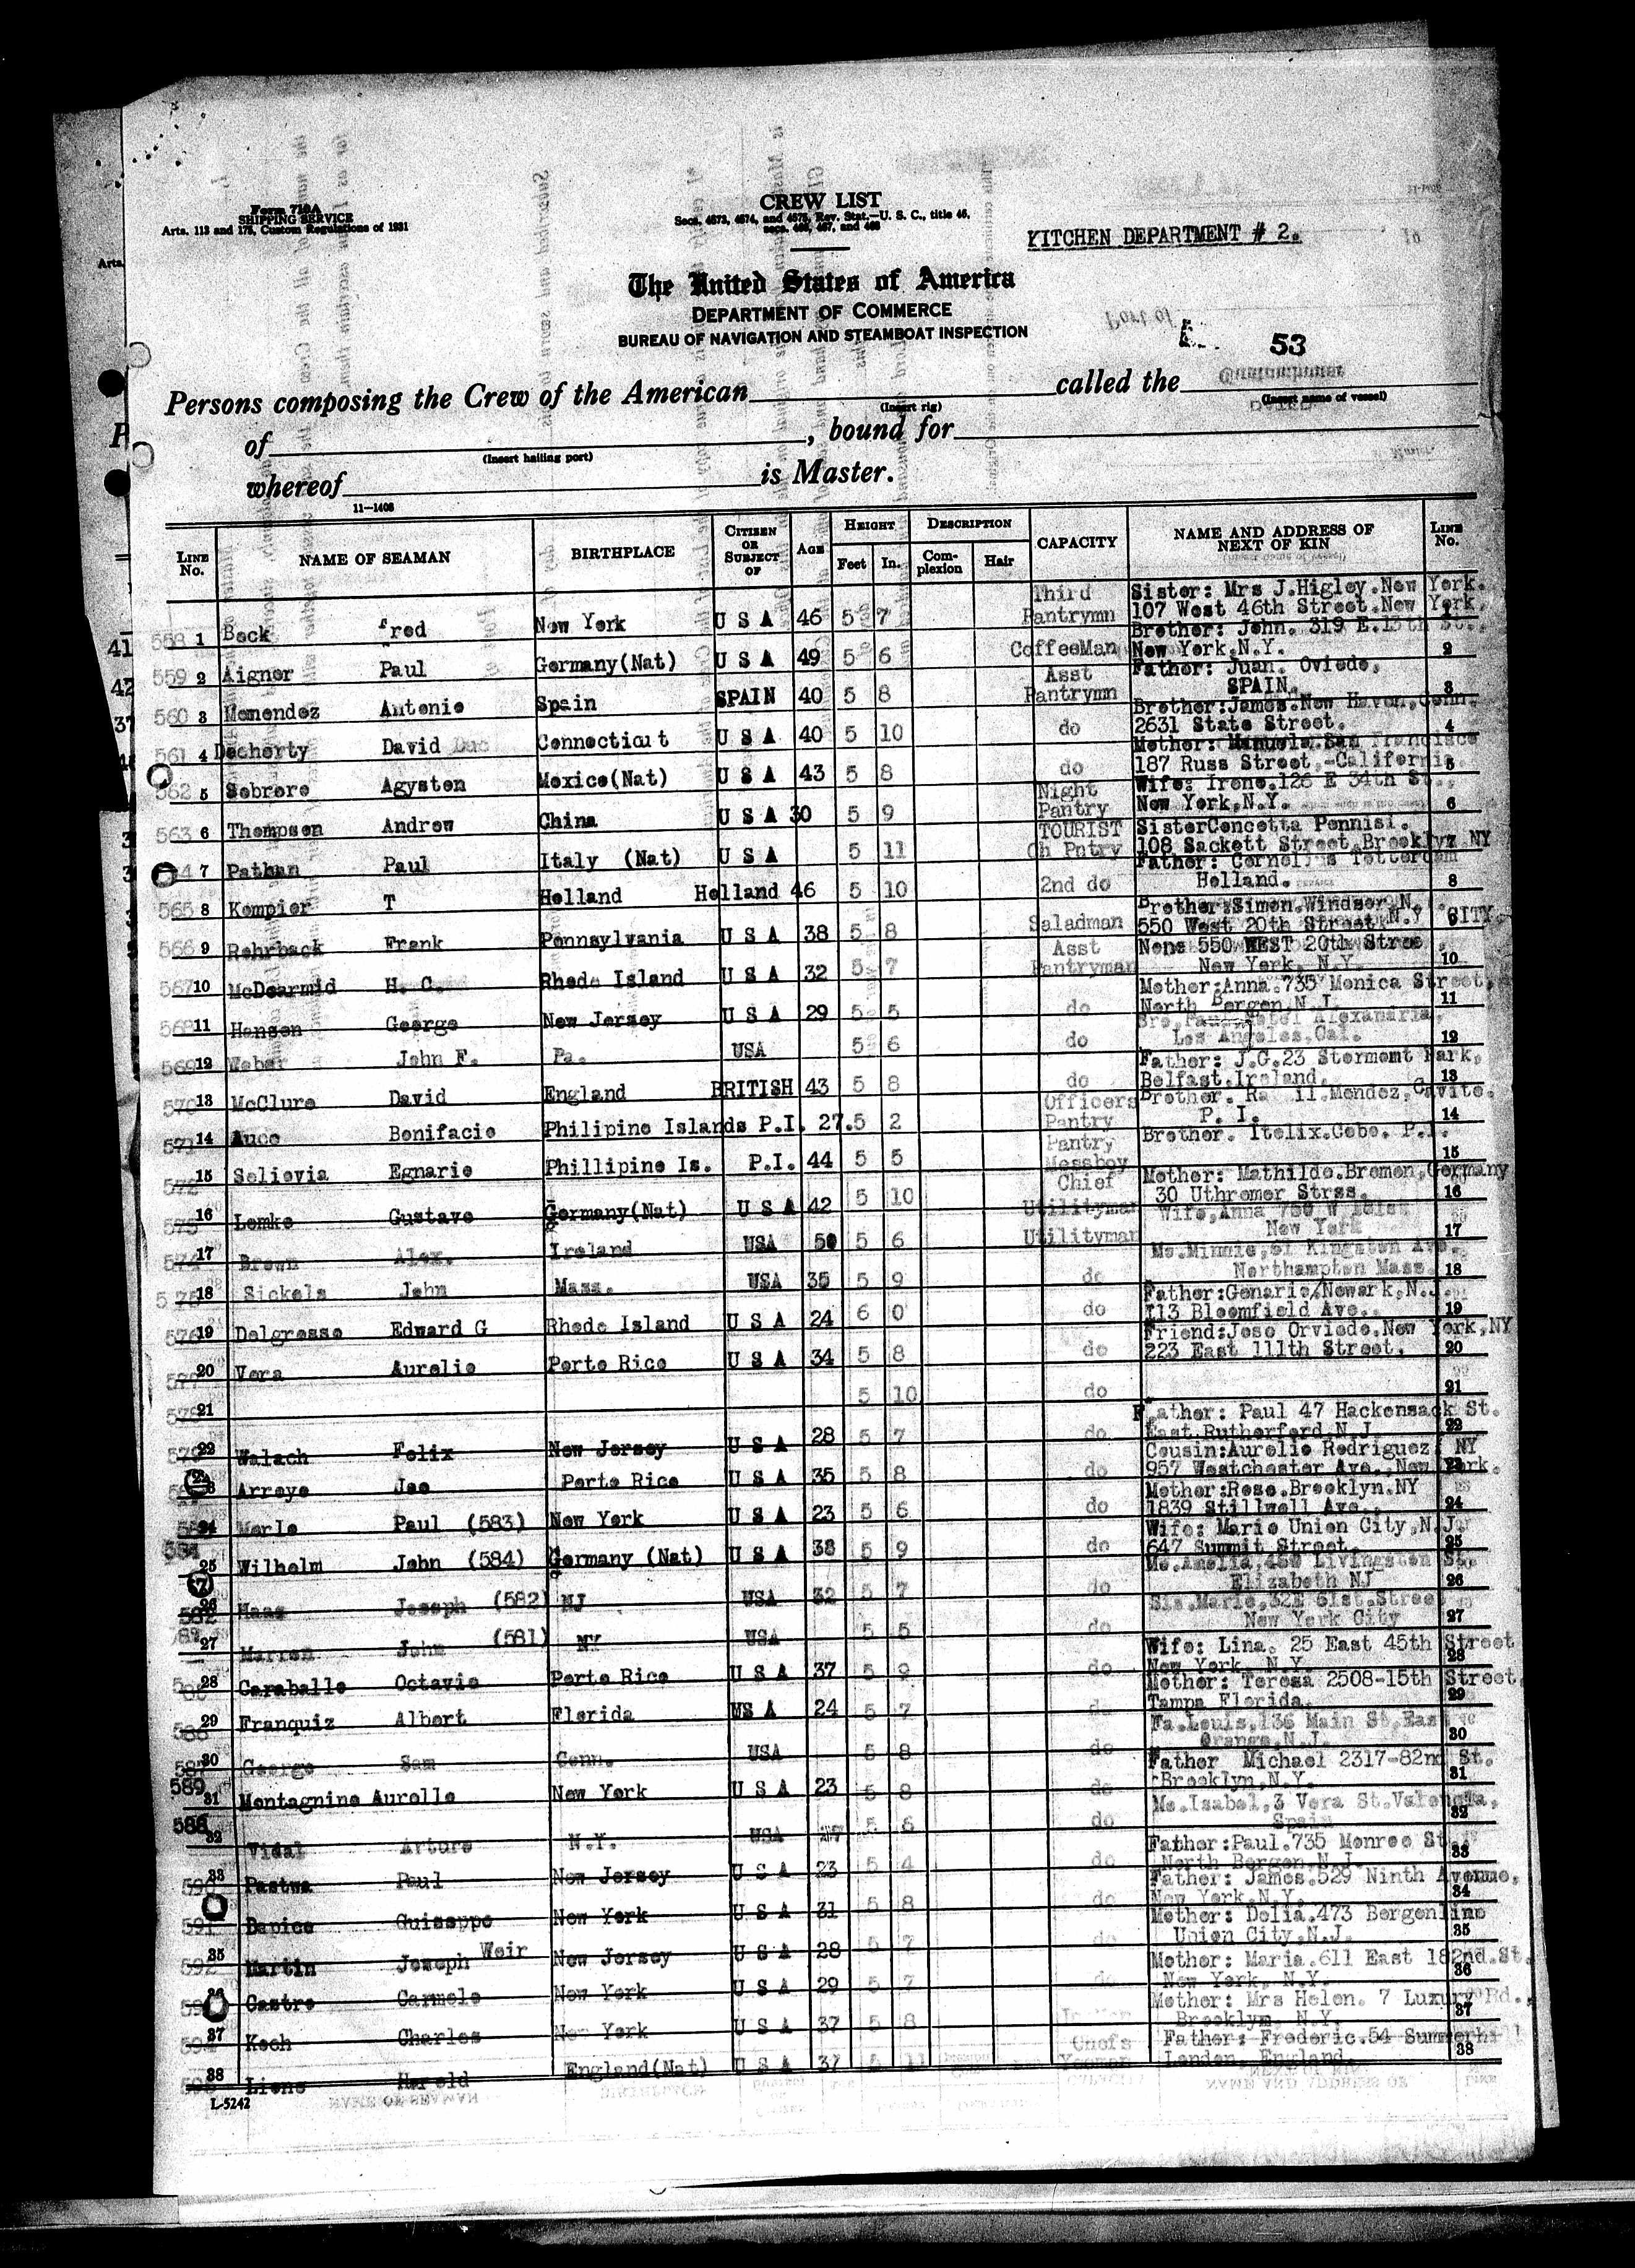 Form 710A
SHIPPING SERVICE
Arts. 113 and 175, Custom Regulations of 1931
CREW LIST
Secs. 4573, 4574, and 4575, Rev. Stat.—U. S. C., title 46,
secs. 466, 467, and 468
KITCHEN DEPARTMENT # 2.
The United States of America
DEPARTMENT OF COMMERCE
BUREAU OF NAVIGATION AND STEAMBOAT INSPECTION
53
Persons composing the Crew of the American called the
(Insert rig) (Insert name of vessel)
of , bound for
(Insert hailing port)
whereof is Master.
11—1408
LINE No. NAME OF SEAMAN BIRTHPLACE CITIZEN OR SUBJECT OF AGE HEIGHT Feet In. DESCRIPTION Complexion Hair CAPACITY NAME AND ADDRESS OF NEXT OF KIN LINE No.
558 1 Beck fred New York U S A 46 5 7 Third Pantrymn Sister: Mrs J.Higley.New York. 107 West 46th Street.New York. 1
559 2 Aigner Paul Germany(Nat) U S A 49 5 6 CoffeeMan Brother: John. 319 E.13th St., New York.N.Y. 2
560 3 Menendez Antonio Spain SPAIN 40 5 8 Asst Pantrymn Father: Juan. Oviedo, SPAIN. 3
561 4 Docherty David Connecticut U S A 40 5 10 do Brother:James.New Haven,Conn. 2631 State Street. 4
562 5 Sobrero Agysten Mexico(Nat) U S A 43 5 8 do Mother: Manuela.San Francisco 187 Russ Street,-California. 5
563 6 Thompson Andrew China U S A 30 5 9 Night Pantry Wife: Irene.126 E 34th St., New York,N.Y. 6
7 Pathan Paul Italy (Nat) U S A 5 11 TOURIST Ch Pntry SisterConcetta Pennisi. 108 Sackett Street.Brooklyn NY 7
565 8 Kompier T Holland Holland 46 5 10 2nd do Father: Cornelius Totterdam Holland. 8
566 9 Rohrback Frank Pennsylvania U S A 38 5 8 Saladman Brother:Simon.Windsor.N. 550 West 20th Street N.Y CITY. 9
567 10 McDearmid H. C. Rhode Island U S A 32 5 7 Asst Pantryman None 550 WEST 20th Stree New York, N.Y. 10
568 11 Hansen George New Jersey U S A 29 5 5 do Mother:Anna.735 Monica Street, North Bergen N.J. 11
569 12 Weber John F. Pa. USA 5 6 do Alexandria. Los Angeles,Cal. 12
570 13 McClure David England BRITISH 43 5 8 do Father: J.G.23 Stormont Park, Belfast.Ireland. 13
571 14 Auce Bonifacio Philipine Islands P.I. 27. 5 2 Officers Pantry Brother. Mendez,Cavite. P. I. 14
572 15 Selievia Egnario Phillipine Is. P.I. 44 5 5 Pantry Messboy Brother. Itelix.Cebo. P.I. 15
573 16 Lemke Gustave Germany(Nat) U S A 42 5 10 Chief Utilityman Mother: Mathilde.Bremen,Germany 30 Uthremer Strss. 16
574 17 Brown Alex. Ireland USA 50 5 6 Utilityman Wife,Anna New York 17
575 18 Sickels John Mass. USA 35 5 9 do Mo.Minnie,61 Kingston Ave. Northampton Mass. 18
576 19 Delgresso Edward G Rhode Island U S A 24 6 0 do Father:Genario/Newark,N.J. 113 Bloomfield Ave.. 19
577 20 Vera Aurelio Porto Rico U S A 34 5 8 do Friend:Jose Orviedo.New York,NY 223 East 111th Street. 20
578 21 5 10 do 21
579 22 Walach Felix New Jersey U S A 28 5 7 do Father: Paul 47 Hackensack St. East Rutherford,N.J. 22
Arroyo Joe Porto Rico U S A 35 5 8 do Cousin:Aurelio Rodriguez NY 957 Westchester Ave.,New York. 23
24 Merle Paul (583) New York U S A 23 5 6 do Mother:Rose.Brooklyn.NY 1839 Stillwell Ave., 24
584 25 Wilhelm John (584) Germany (Nat) U S A 38 5 9 do Wife: Marie Union City,N.J. 647 Summit Street. 25
26 Haas Joseph (582) NJ USA 32 5 7 do Mo.Amelia,460 Livingston St. Elizabeth NJ 26
27 Marren John (581) NY USA 5 5 do Sis.Marie,32E 61st.Street New York City 27
28 Caraballo Octavio Porto Rico U S A 37 5 9 do Wife: Lina. 25 East 45th Street New York N.Y. 28
586 29 Franquiz Albert Florida US A 24 5 7 do Mother: Teresa 2508-15th Street. Tampa Florida. 29
587 30 George Sam Conn. USA 5 8 do Fa.Louis,136 Main St,East Orange,N.J. 30
589 31 Montagnino Aurollo New York U S A 23 5 8 do Father Michael 2317-82nd St. Brooklyn,N.Y. 31
588 32 Vidal Arturo N.Y. USA 5 6 do Mo.Isabel,3 Vera St.Valencia, Spain 32
590 33 Pastwa Paul New Jersey U S A 23 5 4 do Father:Paul.735 Monroe St. North Bergen,N.J. 33
591 Bapice Guiseppe New York U S A 31 5 8 do Father: James.529 Ninth Avenue, New York,N.Y. 34
592 35 Martin Joseph Weir New Jersey U S A 28 5 7 do Mother: Delia.473 Bergenline Union City,N.J. 35
Castro Carmelo New York U S A 29 5 7 do Mother: Maria.611 East 182nd.St. New York, N.Y. 36
594 37 Koch Charles New York U S A 37 5 8 Mother: Mrs Helen. 7 Luxury Rd., Brooklyn, N.Y. 37
595 38 Lions Harold England(Nat) U S A 37 5 11 Chefs Yeoman Father: Frederic.54 Summerhill London, England. 38
L-5242